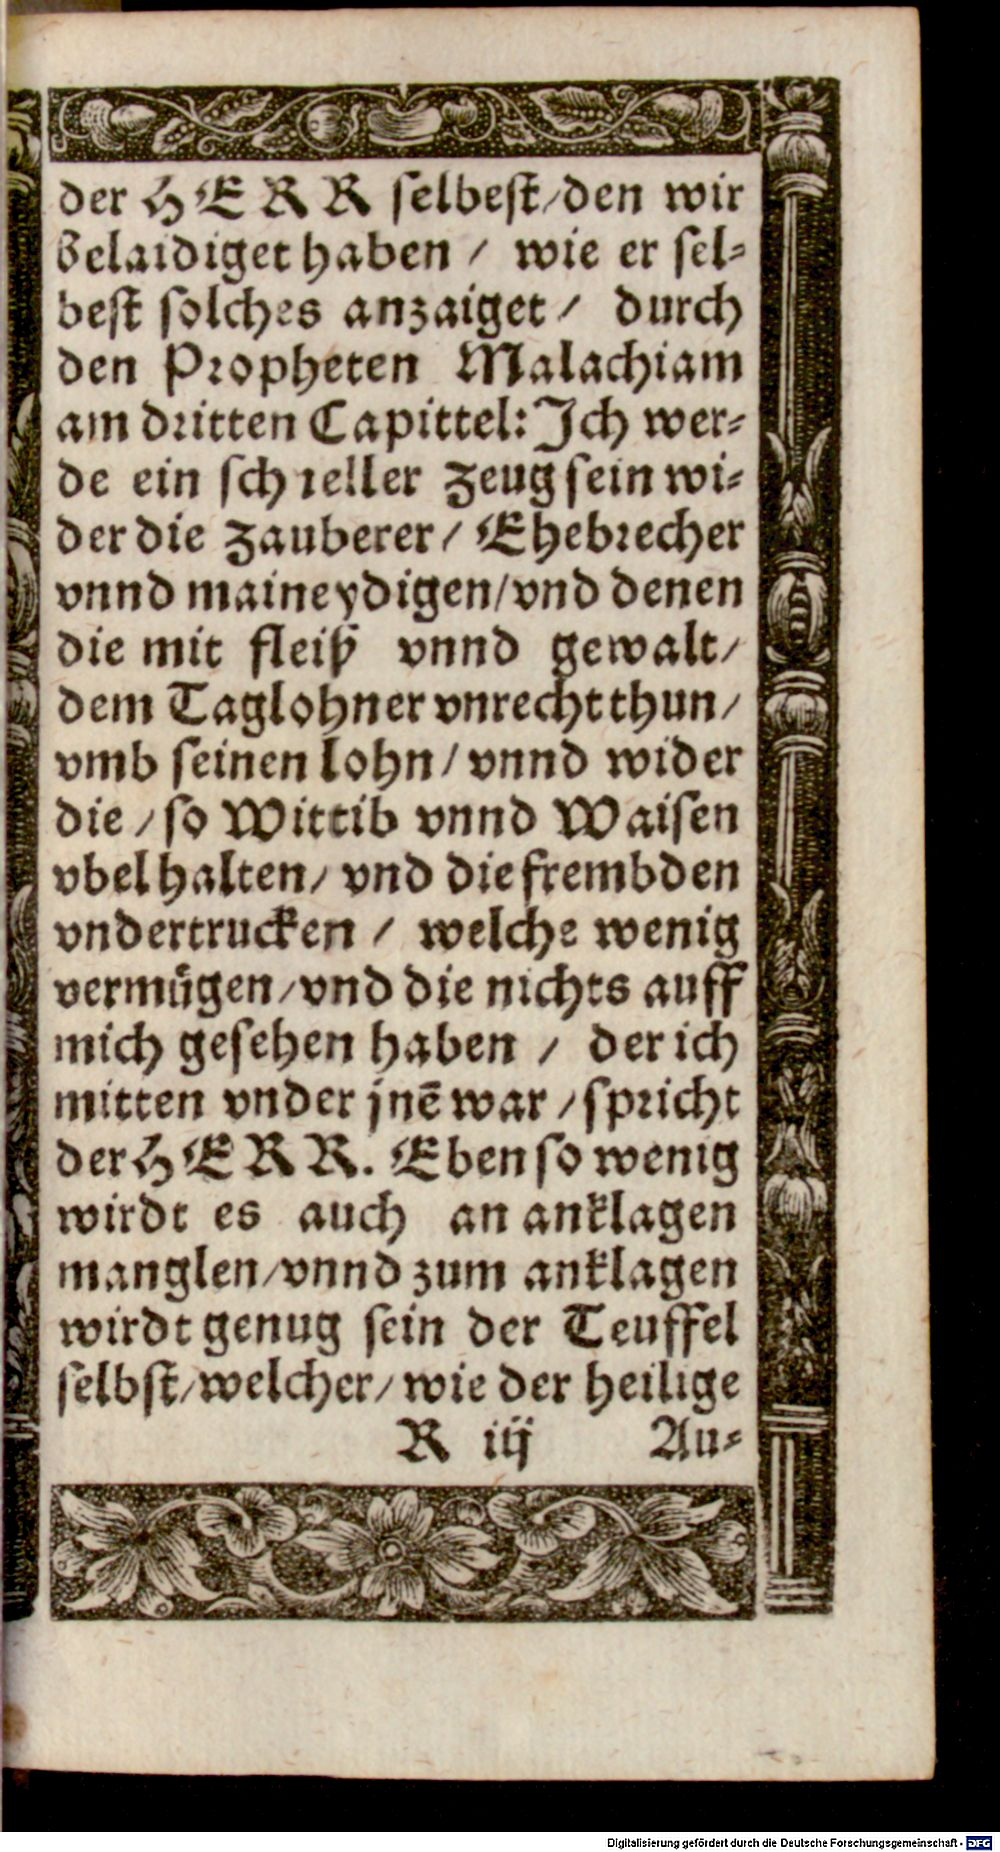 der HERR selbest/den wir
belaidiget haben / wie er sel-
best solches anzaiget / durch
den Propheten Malachiam
am dritten Capittel: Ich wer-
de ein schneller zeug sein wi-
der die zauberer / Ehebrecher
vnnd maineydigen/vnd denen
die mit fleiß vnnd gewalt/
dem Taglohner vnrecht thun/
vmb seinen lohn / vnnd wider
die / so Wittib vnnd Waisen
vbel halten/ vnd die frembden
vndertrucken / welche wenig
vermügen/vnd die nichts auff
mich gesehen haben / der ich
mitten vnder jnē war / spricht
der HERR. Eben so wenig
wirdt es auch an anklagen
manglen/vnnd zum anklagen
wirdt genug sein der Teuffel
selbst/welcher/wie der heilige
R iij Au-
Digitalisierung gefördert durch die Deutsche Forschungsgemeinschaft - DFG